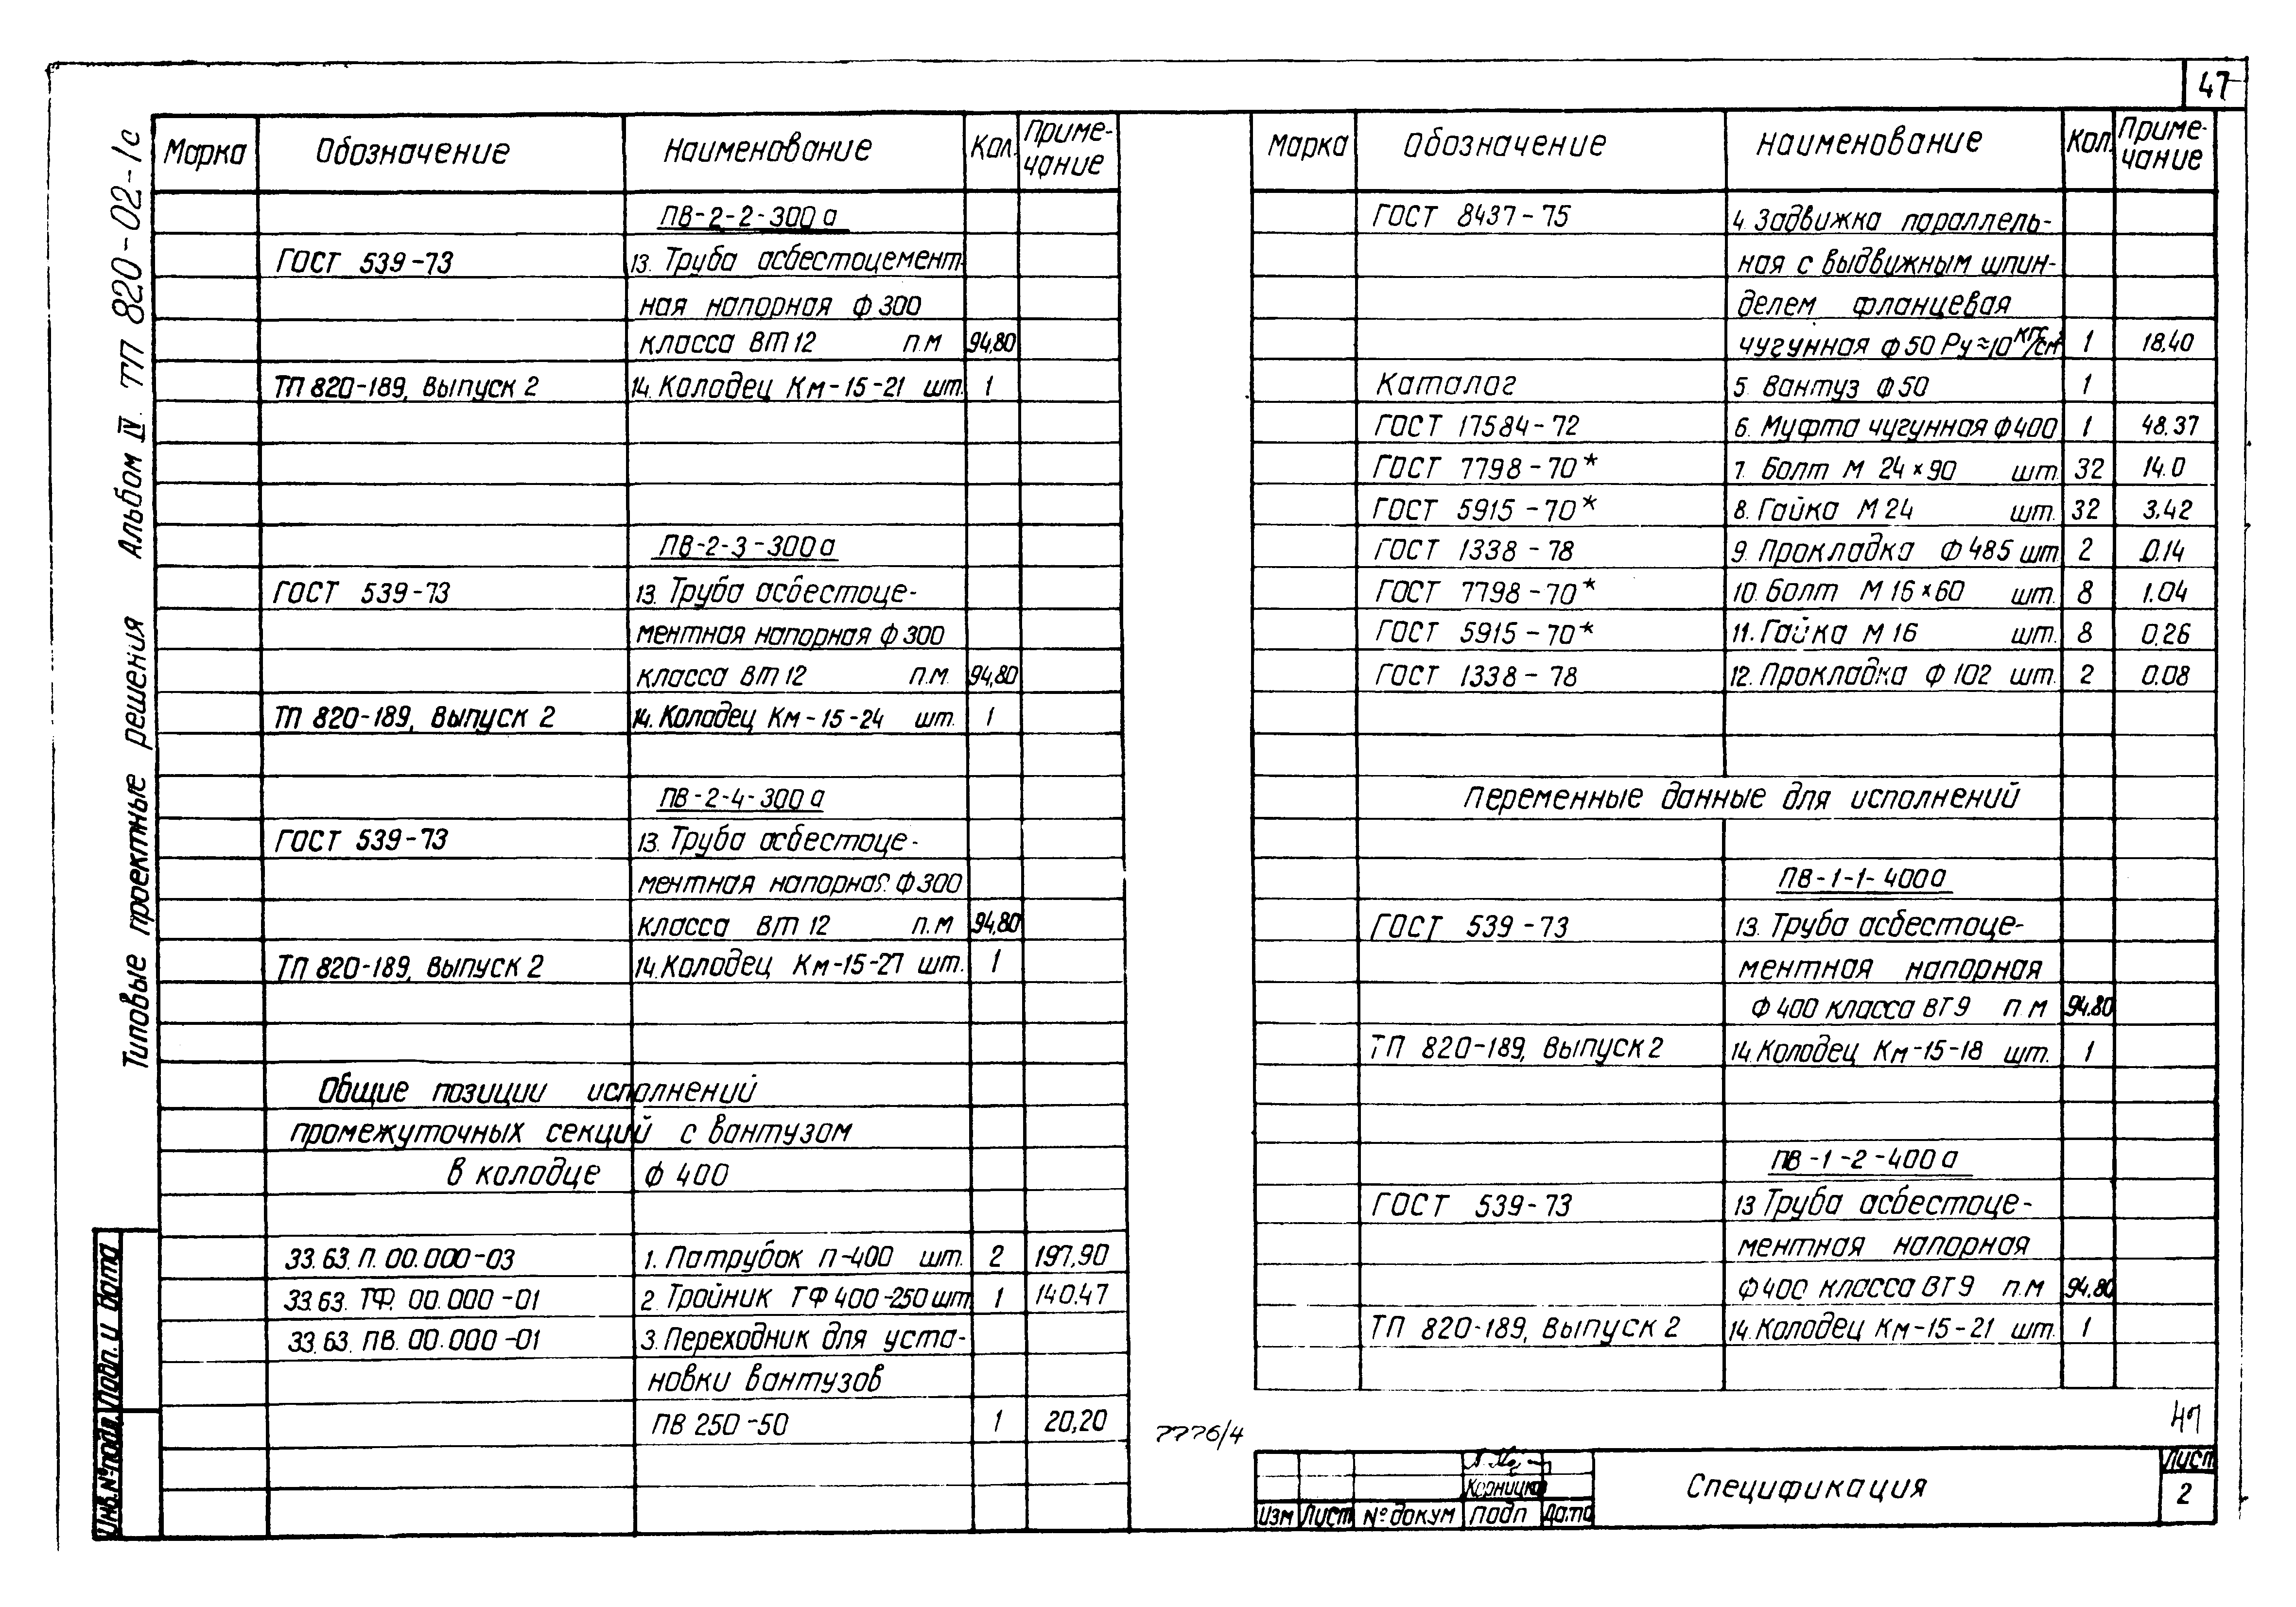 47
Типовые проектные решения Альбом IV. ТП 820-02-1с
Марка Обозначение Наименование Кол. Приме-
чание
ПВ-2-2-300а
ГОСТ 539-73 13. Труба асбестоцемент-
ная напорная Ф300
класса ВТ12 п.м 94,80
ТП 820-189, Выпуск 2 14. Колодец Км-15-21 шт. 1
ПВ-2-3-300а
ГОСТ 539-73 13. Труба асбестоце-
ментная напорная Ф300
класса ВТ12 п.м. 94,80
ТП 820-189, Выпуск 2 14. Колодец Км-15-24 шт. 1
ПВ-2-4-300а
ГОСТ 539-73 13. Труба асбестоце-
ментная напорная Ф300
класса ВТ12 п.м 94,80
ТП 820-189, Выпуск 2 14. Колодец Км-15-27 шт. 1
Общие позиции исполнений
промежуточных секций с вантузом
в колодце Ф 400
33.63.П.00.000-03 1. Патрубок П-400 шт. 2 197,90
33.63.ТФ.00.000-01 2. Тройник ТФ400-250 шт. 1 140.47
33.63.ПВ.00.000-01 3. Переходник для уста-
новки вантузов
ПВ 250-50 1 20,20
Марка Обозначение Наименование Кол. Приме-
чание
ГОСТ 8437-75 4. Задвижка параллель-
ная с выдвижным шпин-
делем фланцевая
чугунная Ф50 Ру≈10 кгс/см² 1 18,40
Каталог 5. Вантуз Ф50 1
ГОСТ 17584-72 6. Муфта чугунная Ф400 1 48.37
ГОСТ 7798-70* 7. Болт М 24×90 шт. 32 14.0
ГОСТ 5915-70* 8. Гайка М24 шт. 32 3.42
ГОСТ 1338-78 9. Прокладка Ф485 шт. 2 0.14
ГОСТ 7798-70* 10. Болт М16×60 шт. 8 1.04
ГОСТ 5915-70* 11. Гайка М16 шт. 8 0.26
ГОСТ 1338-78 12. Прокладка Ф102 шт. 2 0.08
Переменные данные для исполнений
ПВ-1-1-400а
ГОСТ 539-73 13. Труба асбестоце-
ментная напорная
Ф400 класса ВТ9 п.м 94.80
ТП 820-189, Выпуск 2 14. Колодец Км-15-18 шт. 1
ПВ-1-2-400а
ГОСТ 539-73 13 Труба асбестоце-
ментная напорная
Ф400 класса ВТ9 п.м 94.80
ТП 820-189, Выпуск 2 14. Колодец Км-15-21 шт. 1
7776/4
47
Инв.№подл. Подп. и дата
Изм Лист №докум Подп Дата
Спецификация
Лист
2